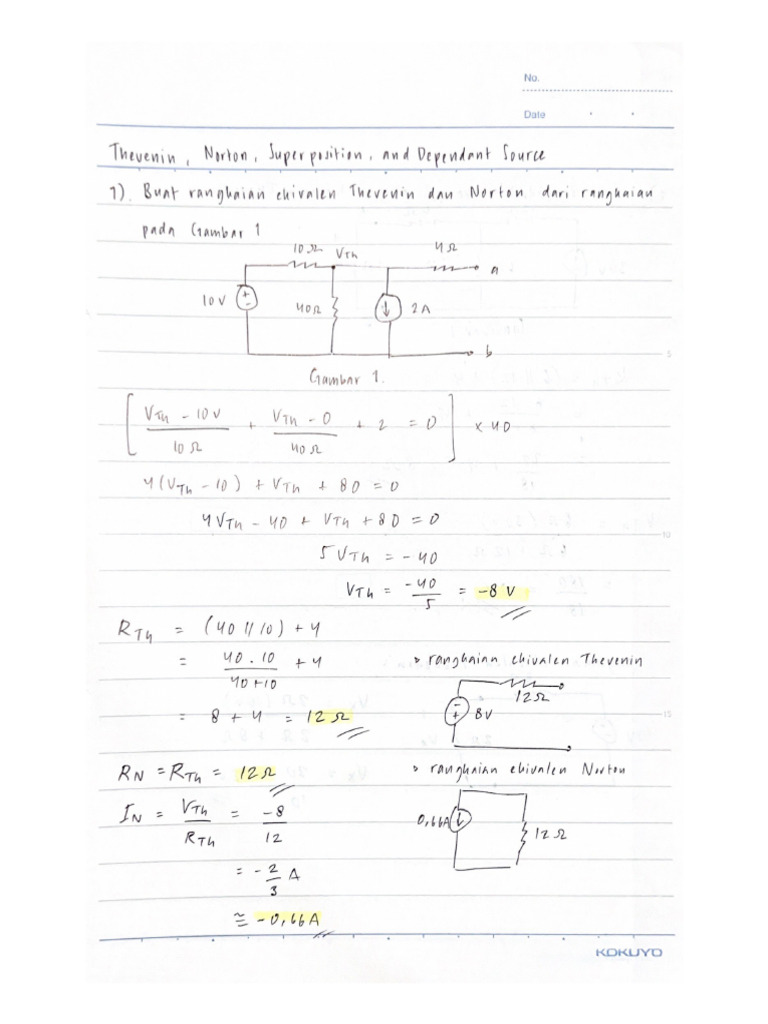 No.
Date
Thevenin, Norton, Superposition, and Dependant Source
1). Buat rangkaian ekivalen Thevenin dan Norton dari rangkaian
pada Gambar 1
10Ω VTh 4Ω
a
10V 40Ω 2A
b
Gambar 1.
[ (VTh - 10V)/10Ω + (VTh - 0)/40Ω + 2 = 0 ] x 40
4(VTh - 10) + VTh + 80 = 0
4VTh - 40 + VTh + 80 = 0
5VTh = -40
VTh = -40/5 = -8 V
RTh = (40 // 10) + 4
= 40 . 10 / 40+10 + 4
= 8 + 4 = 12Ω
RN = RTh = 12Ω
IN = VTh/RTh = -8/12
= -2/3 A
≅ -0,66A
rangkaian ekivalen Thevenin
12Ω
8V
rangkaian ekivalen Norton
0,66A 12Ω
5
10
15
KOKUYO